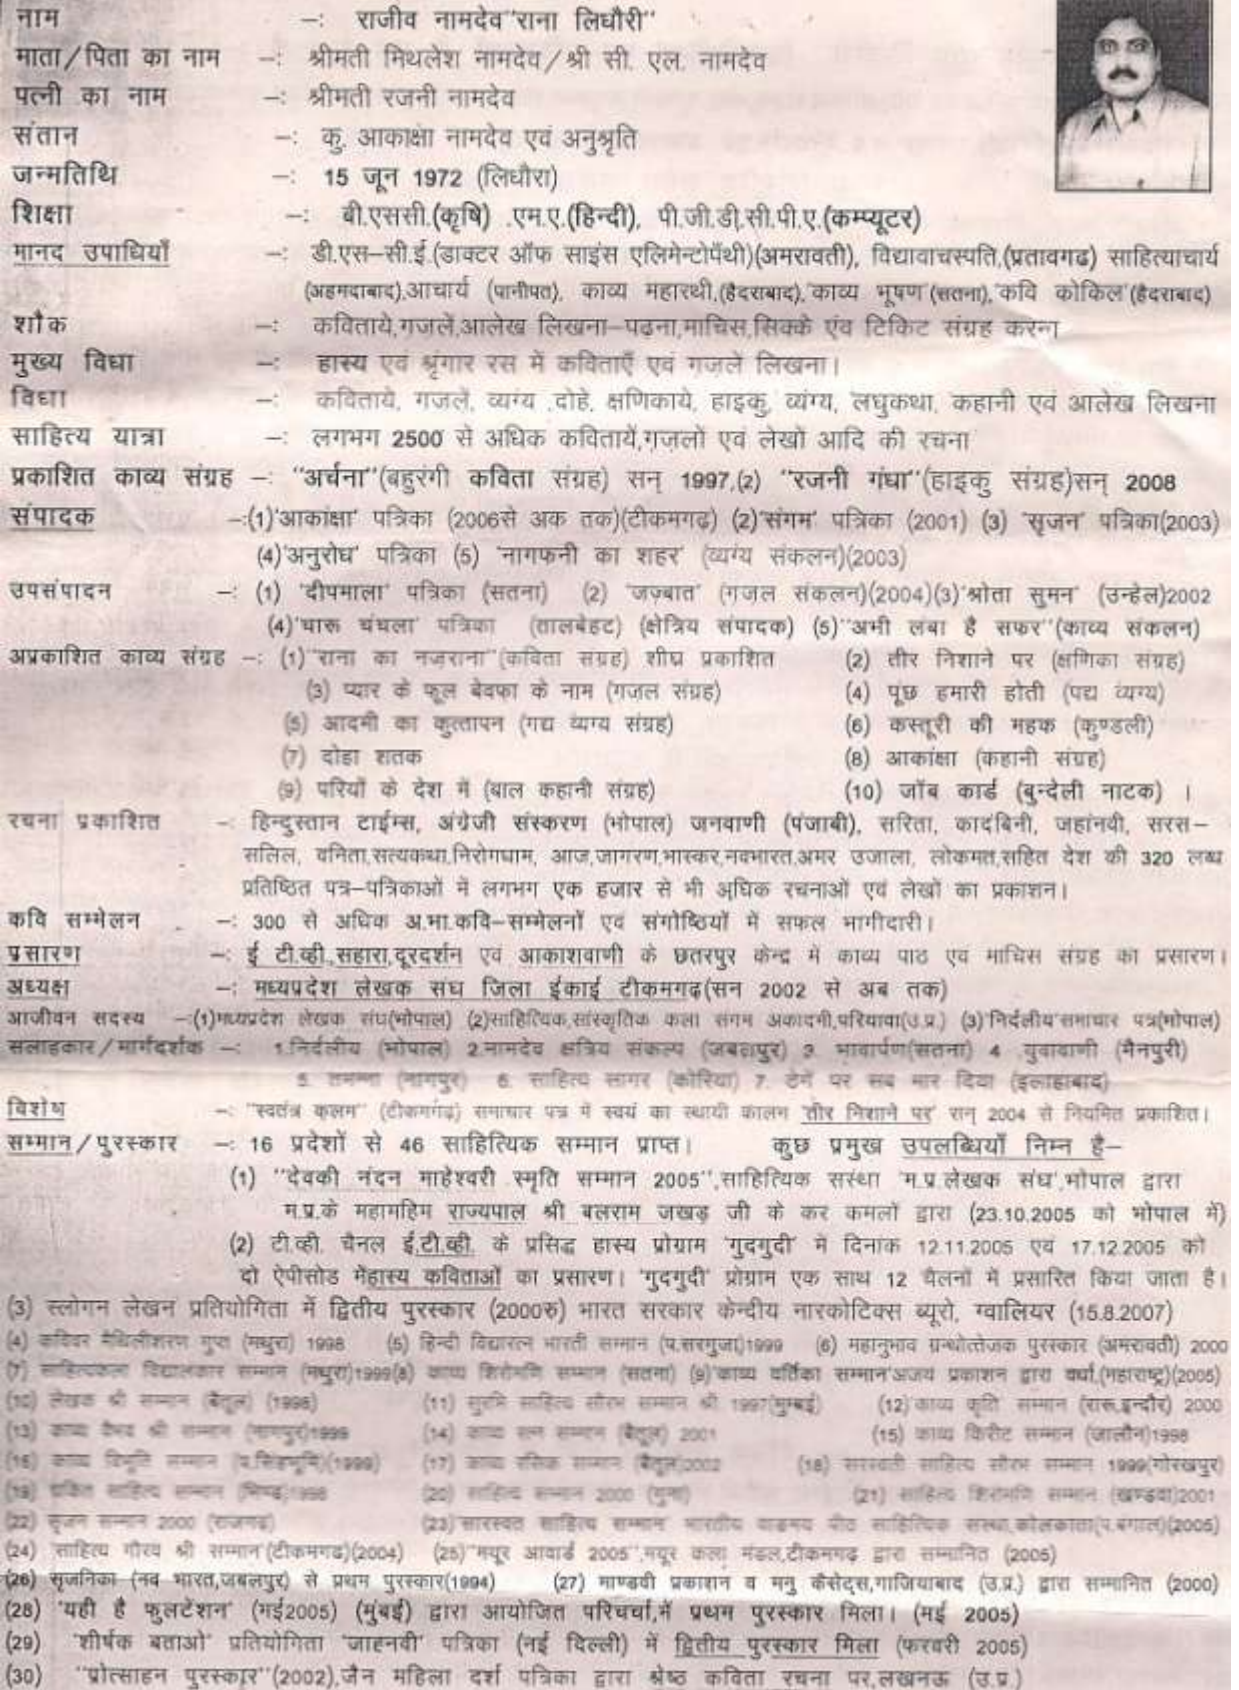 नाम –: राजीव नामदेव"राना लिधौरी"
माता/पिता का नाम –: श्रीमती मिथलेश नामदेव/श्री सी. एल. नामदेव
पत्नी का नाम –: श्रीमती रजनी नामदेव
संतान –: कु. आकाक्षा नामदेव एवं अनुश्रृति
जन्मतिथि –: 15 जून 1972 (लिधौरा)
शिक्षा –: बी.एससी.(कृषि) .एम.ए.(हिन्दी), पी.जी.डी.सी.पी.ए.(कम्प्यूटर)
मानद उपाधियाँ –: डी.एस–सी.ई.(डाक्टर ऑफ साइंस एलिमेन्टोपैथी)(अमरावती), विद्यावाचस्पति,(प्रतावगढ) साहित्याचार्य
(अहमदाबाद),आचार्य (पानीपत), काव्य महारथी,(हैदराबाद),काव्य भूषण(सतना),'कवि कोकिल'(हैदराबाद)
शौक –: कविताये,गजलें,आलेख लिखना–पढना,माचिस,सिक्के एंव टिकिट संग्रह करना
मुख्य विधा –: हास्य एवं श्रृंगार रस में कविताएँ एवं गज़ले लिखना।
विधा –: कविताये, गजलें, व्यग्य ,दोहे, क्षणिकाये, हाइकु, व्यंग्य, लघुकथा, कहानी एवं आलेख लिखना
साहित्य यात्रा –: लगभग 2500 से अधिक कवितायें,गज़लों एवं लेखों आदि की रचना
प्रकाशित काव्य संग्रह –: "अर्चना"(बहुरंगी कविता संग्रह) सन् 1997,(2) "रजनी गंधा"(हाइकु संग्रह)सन् 2008
संपादक –:(1)'आकांक्षा' पत्रिका (2006से अक तक)(टीकमगढ़) (2)'संगम' पत्रिका (2001) (3) 'सृजन' पत्रिका(2003)
(4)'अनुरोध' पत्रिका (5) 'नागफनी का शहर' (व्यग्य संकलन)(2003)
उपसंपादन –: (1) 'दीपमाला' पत्रिका (सतना) (2) 'जज़्बात' (गजल संकलन)(2004)(3)'श्रोता सुमन' (उन्हेल)2002
(4)'चारू चंचला' पत्रिका (तालबेहट) (क्षेत्रिय संपादक) (5)"अभी लंबा है सफर"(काव्य संकलन)
अप्रकाशित काव्य संग्रह –: (1)"राना का नज़राना"(कविता संग्रह) शीघ्र प्रकाशित (2) तीर निशाने पर (क्षणिका संग्रह)
(3) प्यार के फूल बेवफा के नाम (गजल संग्रह) (4) पूंछ हमारी होती (पद्य व्यंग्य)
(5) आदमी का कुत्तापन (गद्य व्यंग्य संग्रह) (6) कस्तूरी की महक (कुण्डली)
(7) दोहा शतक (8) आकांक्षा (कहानी संग्रह)
(9) परियों के देश में (बाल कहानी संग्रह) (10) जॉब कार्ड (बुन्देली नाटक) ।
रचना प्रकाशित –: हिन्दुस्तान टाईम्स, अंग्रेजी संस्करण (भोपाल) जनवाणी (पंजाबी), सरिता, कादंबिनी, जहांनवी, सरस–
सलिल, वनिता,सत्यकथा,निरोगधाम, आज,जागरण,भास्कर,नवभारत,अमर उजाला, लोकमत,सहित देश की 320 लब्ध
प्रतिष्ठित पत्र–पत्रिकाओं में लगभग एक हजार से भी अधिक रचनाओं एवं लेखों का प्रकाशन।
कवि सम्मेलन –: 300 से अधिक अ.भा.कवि–सम्मेलनों एवं संगोष्ठियों में सफल भागीदारी।
प्रसारण –: ई टी.व्ही.,सहारा,दूरदर्शन एवं आकाशवाणी के छतरपुर केन्द्र में काव्य पाठ एवं माचिस संग्रह का प्रसारण।
अध्यक्ष –: मध्यप्रदेश लेखक संघ जिला ईकाई टीकमगढ़(सन 2002 से अब तक)
आजीवन सदस्य –:(1)मध्यप्रदेश लेखक संघ(भोपाल) (2)साहित्यिक,सांस्कृतिक कला संगम अकादमी,परियावा(उ.प्र.) (3)'निर्दलीय'समाचार पत्र(भोपाल)
सलाहकार/मार्गदर्शक –: 1.निर्दलीय (भोपाल) 2.नामदेव क्षत्रिय संकल्प (जबलपुर) 3. भावार्पण(सतना) 4 .युवावाणी (मैनपुरी)
5. तमन्ना (नागपुर) 6. साहित्य सागर (कोरिया) 7. टेगें पर सब मार दिया (इलाहाबाद)
विशेष –: "स्वतंत्र कलम" (टीकमगढ़) समाचार पत्र में स्वयं का स्थायी कालम 'तीर निशाने पर' सन् 2004 से नियमित प्रकाशित।
सम्मान/पुरस्कार –: 16 प्रदेशों से 46 साहित्यिक सम्मान प्राप्त। कुछ प्रमुख उपलब्धियाँ निम्न है–
(1) "देवकी नंदन माहेश्वरी स्मृति सम्मान 2005",साहित्यिक संस्था 'म.प्र.लेखक संघ',भोपाल द्वारा
म.प्र.के महामहिम राज्यपाल श्री बलराम जखड़ जी के कर कमलों द्वारा (23.10.2005 को भोपाल में)
(2) टी.व्ही. चैनल ई.टी.व्ही. के प्रसिद्ध हास्य प्रोग्राम 'गुदगुदी' में दिनांक 12.11.2005 एवं 17.12.2005 को
दो ऐपीसोड मेंहास्य कविताओं का प्रसारण। 'गुदगुदी' प्रोग्राम एक साथ 12 चैलनों में प्रसारित किया जाता है।
(3) स्लोगन लेखन प्रतियोगिता में द्वितीय पुरस्कार (2000रु) भारत सरकार केन्दीय नारकोटिक्स ब्यूरो, ग्वालियर (15.8.2007)
(4) कविवर मैथिलीशरण गुप्त (मथुरा) 1998 (5) हिन्दी विद्यारत्न भारती सम्मान (प.सरगुजा)1999 (6) महानुभाव ग्रन्थोत्तेजक पुरस्कार (अमरावती) 2000
(7) साहित्यकला विद्यालंकार सम्मान (मथुरा)1999(8) काव्य शिरोमणि सम्मान (सतना) (9)'काव्य वर्तिका सम्मान'अजय प्रकाशन द्वारा वर्धा,(महाराष्ट्र)(2005)
(10) लेखक श्री सम्मान (बैतूल) (1998) (11) सुरभि साहित्य सौरभ सम्मान श्री 1997(मुम्बई) (12)'काव्य कृति सम्मान (रारू,इन्दौर) 2000
(13) काव्य वैभव श्री सम्मान (नागपुर)1999 (14) काव्य रत्न सम्मान (बैतूल) 2001 (15) काव्य किरीट सम्मान (जालौन)1998
(16) काव्य विभूति सम्मान (1999) (17) काव्य रसिक सम्मान (बैतूल)2002 (18) सरस्वती साहित्य सौरभ सम्मान 1999(गोरखपुर)
(19) साहित्य सम्मान (भिण्ड)1998 (20) साहित्य सम्मान 2000 (गुना) (21) साहित्य शिरोमणि सम्मान (खण्डवा)2001
(22) सृजन सम्मान 2000 (राजगढ) (23)'सारस्वत साहित्य सम्मान' भारतीय वाङमय पीठ साहित्यिक संस्था,कोलकाता(प.बंगाल)(2005)
(24) 'साहित्य गौरव श्री सम्मान'(टीकमगढ)(2004) (25)"मयूर आवार्ड 2005",मयूर कला मंडल,टीकमगढ द्वारा सम्मानित (2005)
(26) सृजनिका (नव भारत,जबलपुर) से प्रथम पुरस्कार(1994) (27) माण्डवी प्रकाशन व मनु कैसेट्स,गाजियाबाद (उ.प्र.) द्वारा सम्मानित (2000)
(28) 'यही है फुलटेंशन' (मई2005) (मुंबई) द्वारा आयोजित परिचर्चा,में प्रथम पुरस्कार मिला। (मई 2005)
(29) 'शीर्षक बताओ' प्रतियोगिता 'जाहनवी' पत्रिका (नई दिल्ली) में द्वितीय पुरस्कार मिला (फरवरी 2005)
(30) "प्रोत्साहन पुरस्कार"(2002),जैन महिला दर्श पत्रिका द्वारा श्रेष्ठ कविता रचना पर,लखनऊ (उ.प्र.)